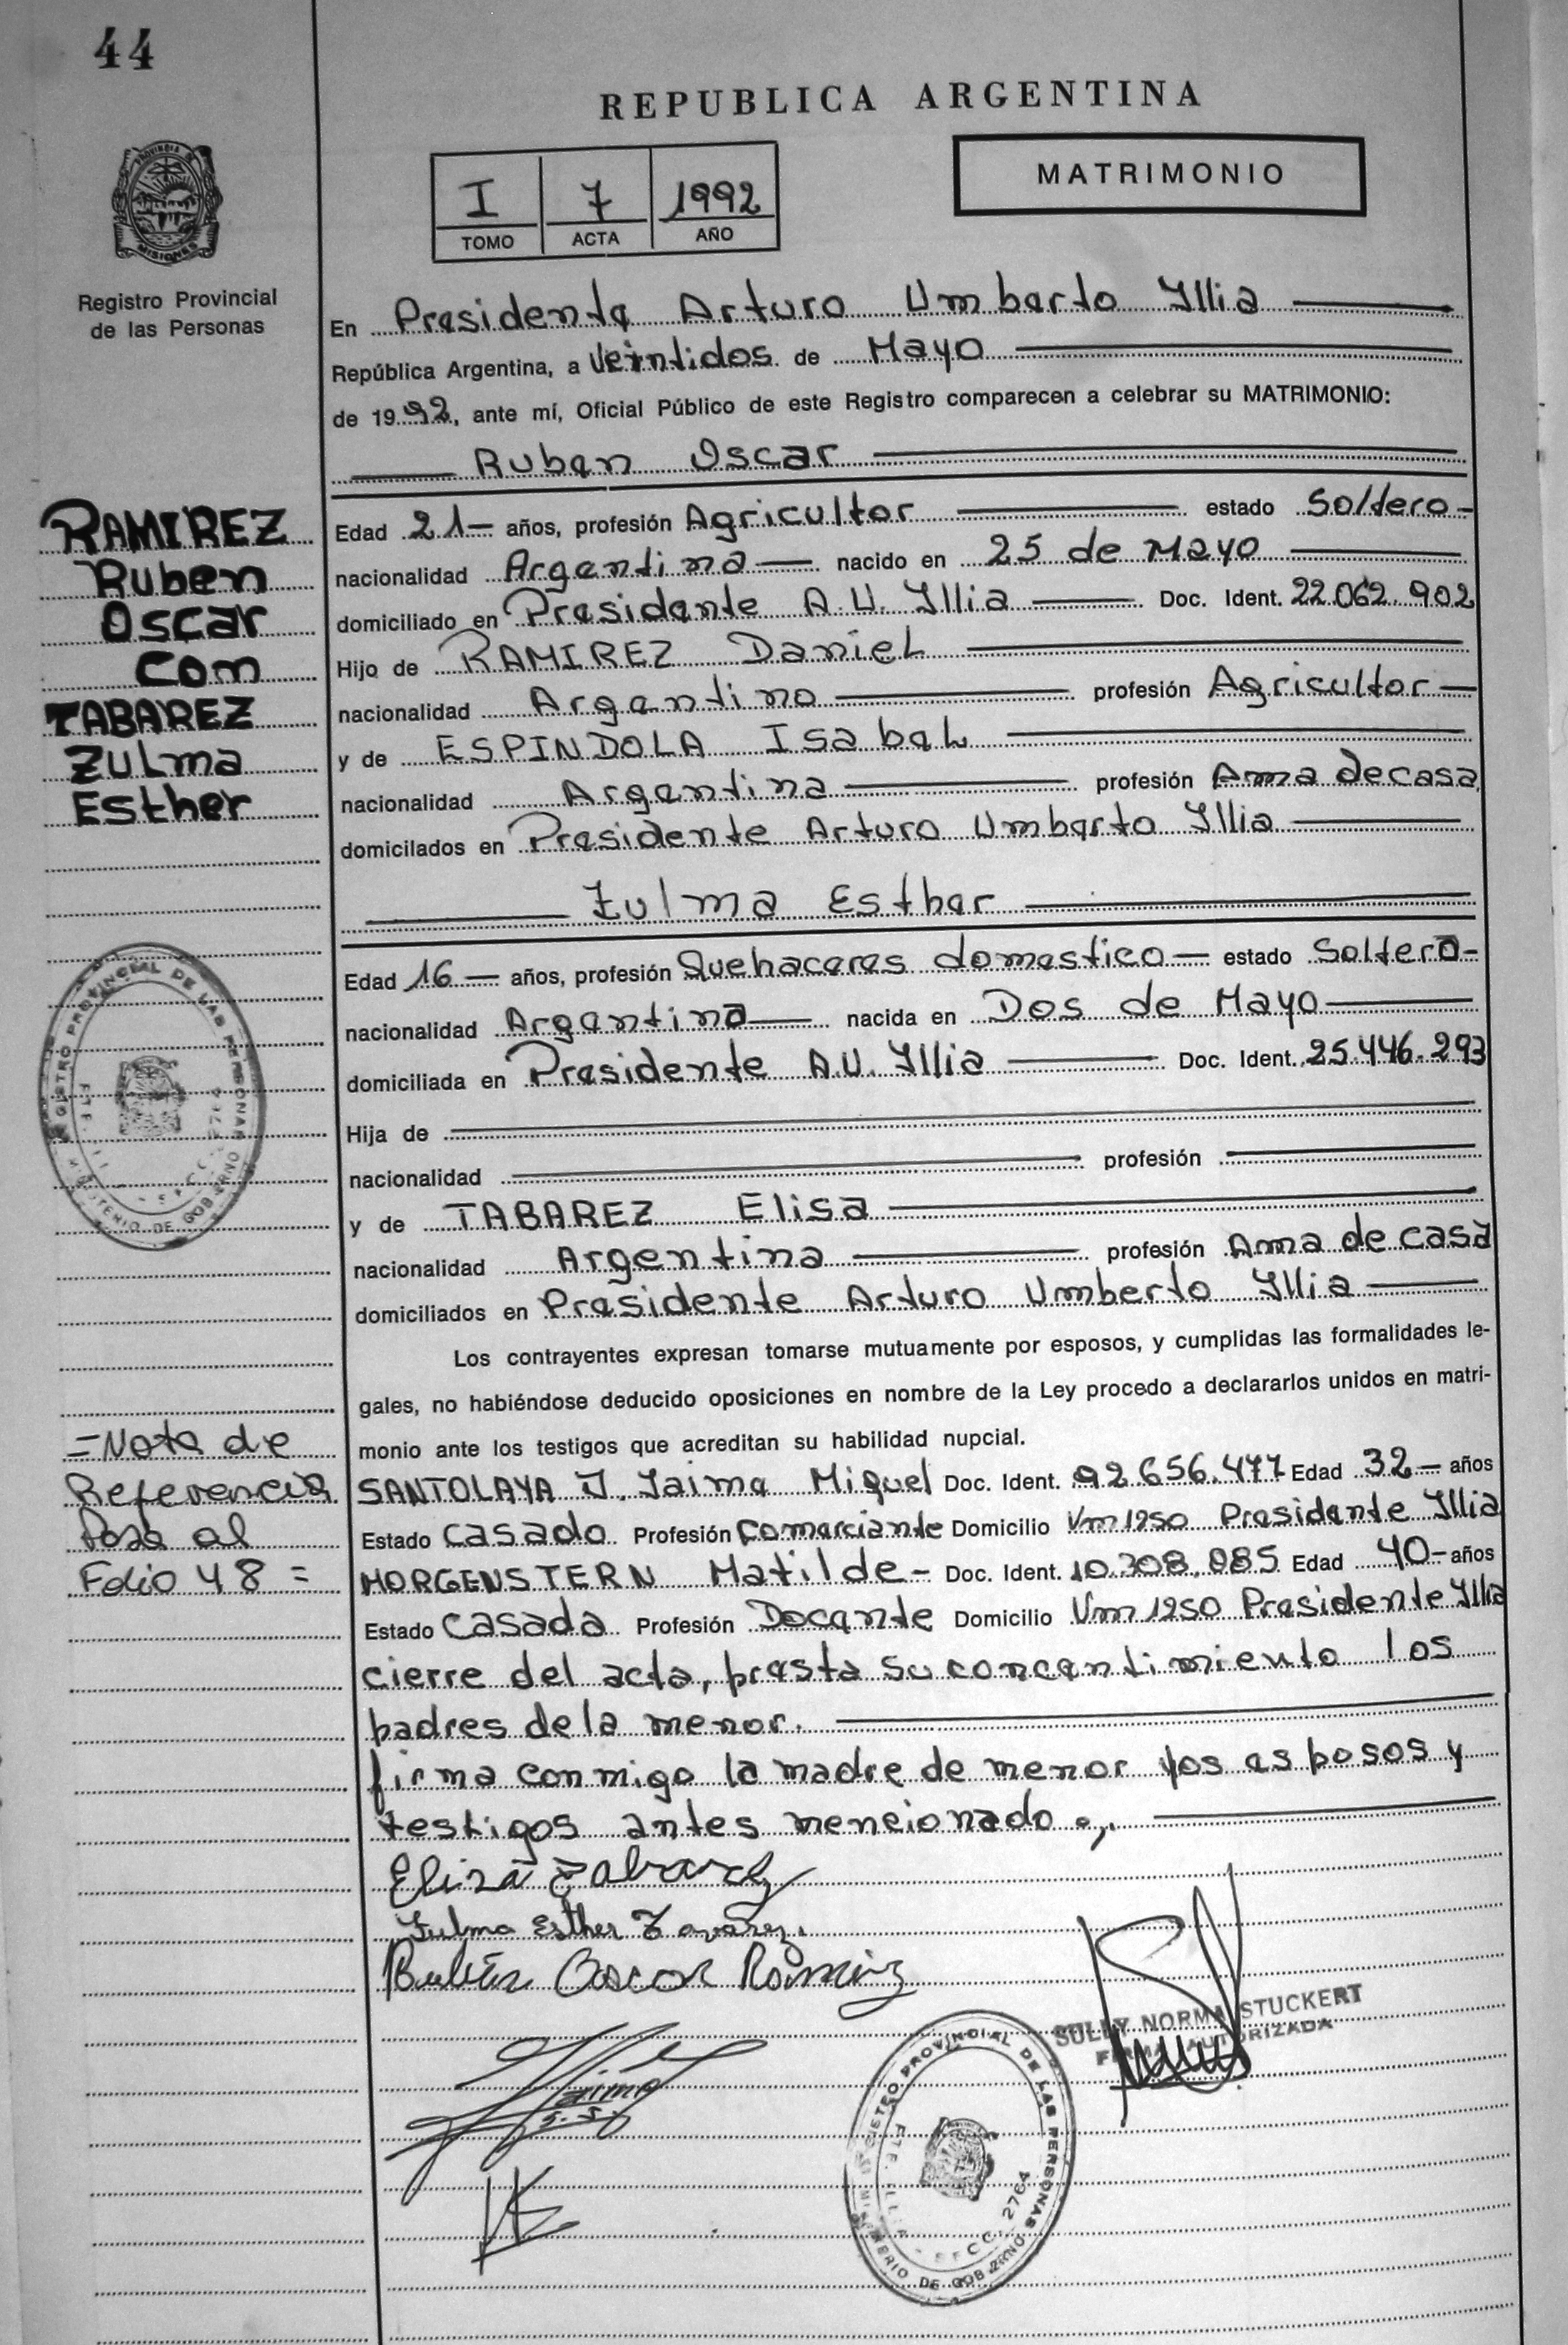 44
REPUBLICA ARGENTINA
PROVINCIA DE
MISIONES
I 7 1992
TOMO ACTA AÑO
MATRIMONIO
Registro Provincial
de las Personas
En Presidente Arturo Umberto Yllia
República Argentina, a Veintidos de Mayo
de 1992, ante mí, Oficial Público de este Registro comparecen a celebrar su MATRIMONIO:
Ruben Oscar
RAMIREZ
Ruben
Oscar
Com
TABAREZ
Zulma
Esther
Edad 21— años, profesión Agricultor estado Soltero-
nacionalidad Argentina— nacido en 25 de Mayo
domiciliado en Presidente A.U. Yllia Doc. Ident. 22.062.902
Hijo de RAMIREZ Daniel
nacionalidad Argentino profesión Agricultor—
y de ESPINDOLA Isabel
nacionalidad Argentina profesión Ama de casa
domicilados en Presidente Arturo Umberto Yllia
Zulma Esther
Edad 16— años, profesión Quehaceres domestico— estado Soltero-
nacionalidad Argentina— nacida en Dos de Mayo
domiciliada en Presidente A.U. Yllia Doc. Ident. 25.446.293
Hija de
nacionalidad profesión
y de TABAREZ Elisa
nacionalidad Argentina profesión Ama de casa
domiciliados en Presidente Arturo Umberto Yllia
Los contrayentes expresan tomarse mutuamente por esposos, y cumplidas las formalidades le-
gales, no habiéndose deducido oposiciones en nombre de la Ley procedo a declararlos unidos en matri-
monio ante los testigos que acreditan su habilidad nupcial.
=Nota de
Referencia
Pasa al
Folio 48 =
SANTOLAYA J. Jaime Miguel Doc. Ident. 92.656.477 Edad 32— años
Estado Casado Profesión Comerciante Domicilio Vm 1250 Presidente Yllia
MORGENSTERN Matilde- Doc. Ident. 10.308.085 Edad 40- años
Estado Casada Profesión Docente Domicilio Vm 1250 Presidente Yllia
cierre del acta, presta su concentimiento los
padres de la menor.
firma conmigo la madre de menor los esposos y
testigos antes mencionado.,.
Elisa Tabarez
Zulma Esther Tavarez.
Rubén Oscar Ramirez
Jaime
S.J.
SULLY NORMA STUCKERT
FIRMA AUTORIZADA
REGISTRO PROVINCIAL DE LAS PERSONAS
MINISTERIO DE GOBIERNO
SECC. 2764
REGISTRO PROVINCIAL DE LAS PERSONAS
MINISTERIO DE GOBIERNO
SECC. 2764